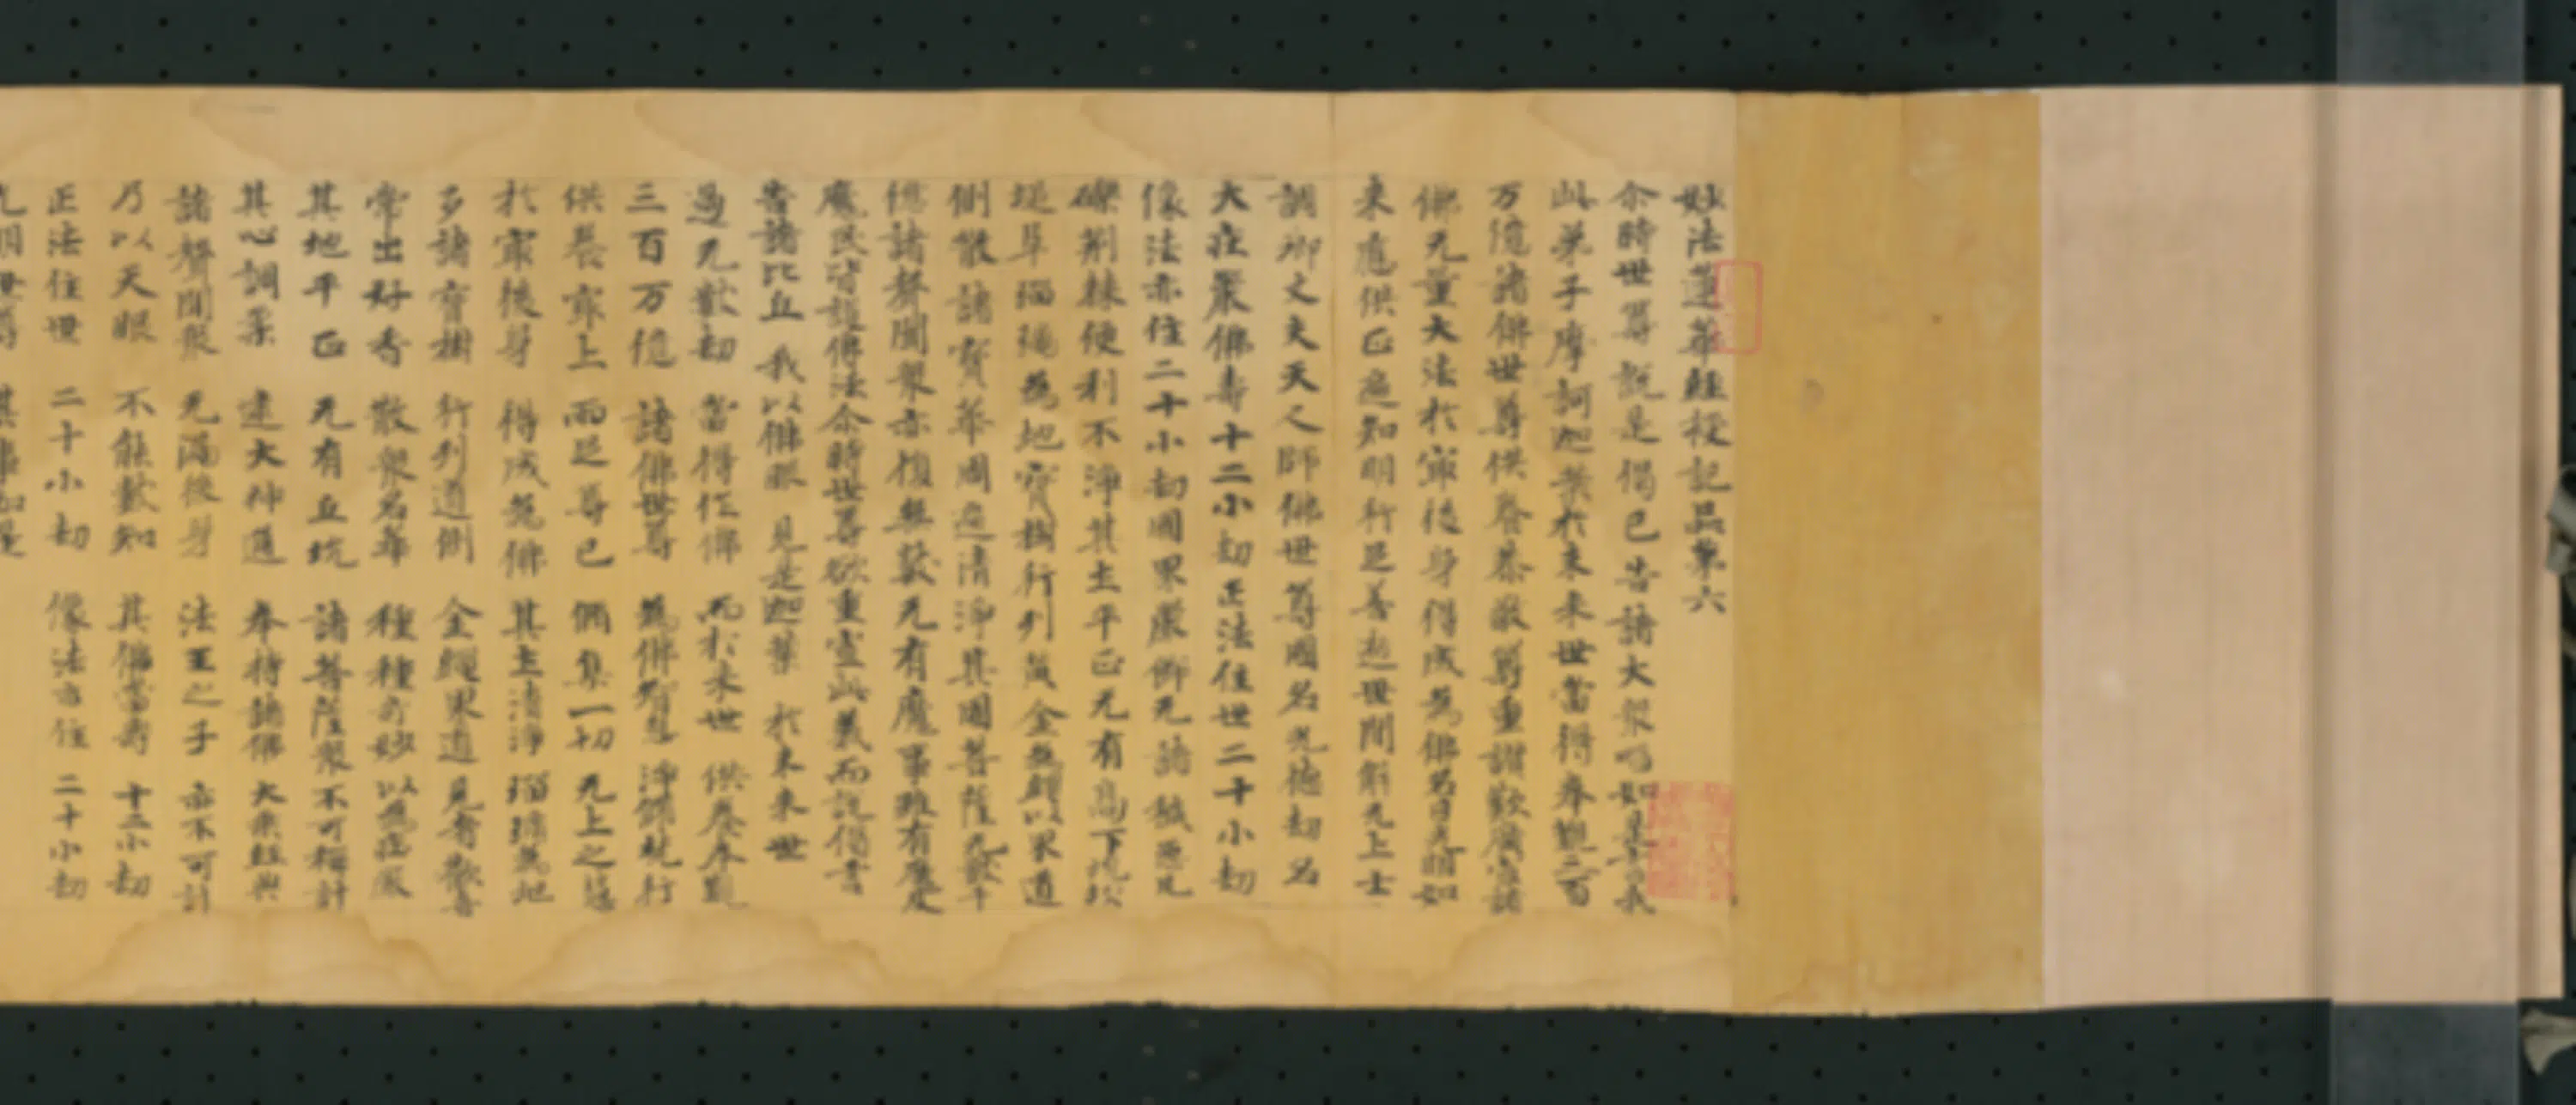 妙法蓮華經授記品第六
尒時世尊說是偈已告諸大衆唱如是言我
此弟子摩訶迦葉於未來世當得奉覲三百
万億諸佛世尊供養恭敬尊重讃歎廣宣諸
佛无量大法於寂後身得成為佛名曰光明如
来應供正遍知明行足善逝世間解无上士
調御丈夫天人師佛世尊國名光德劫名
大莊嚴佛壽十二小劫正法住世二十小劫
像法亦住二十小劫國界嚴飾无諸穢惡瓦
礫荊棘便利不淨其土平正无有高下坑坎
堆阜瑠璃為地寶樹行列黃金為繩以界道
側散諸寶華周遍清淨其國菩薩无數千
億諸聲聞衆亦復無數无有魔事雖有魔及
魔民皆護佛法尒時世尊欲重宣此義而說偈言
告諸比丘 我以佛眼 見是迦葉 於未來世
過无數劫 當得作佛 而於未世 供養奉覲
三百万億 諸佛世尊 為佛智慧 淨修梵行
供養寂上 兩足尊已 修集一切 无上之慧
於寂後身 得成為佛 其土清淨 瑠璃為地
多諸寶樹 行列道側 金繩界道 見者歡喜
常出好香 散衆名華 種種奇妙 以為莊嚴
其地平正 无有丘坑 諸菩薩衆 不可稱計
其心調柔 逮大神通 奉持諸佛 大乘經典
諸聲聞衆 无漏後身 法王之子 亦不可計
乃以天眼 不能數知 其佛當壽 十二小劫
正法住世 二十小劫 像法亦住 二十小劫
光明世尊 其事如是